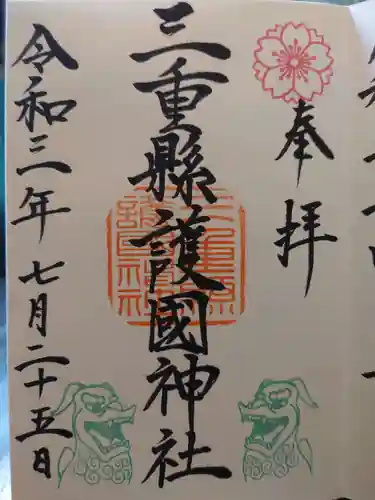 奉拝
三重縣護國神社
令和三年七月二十五日
三重縣護國神社